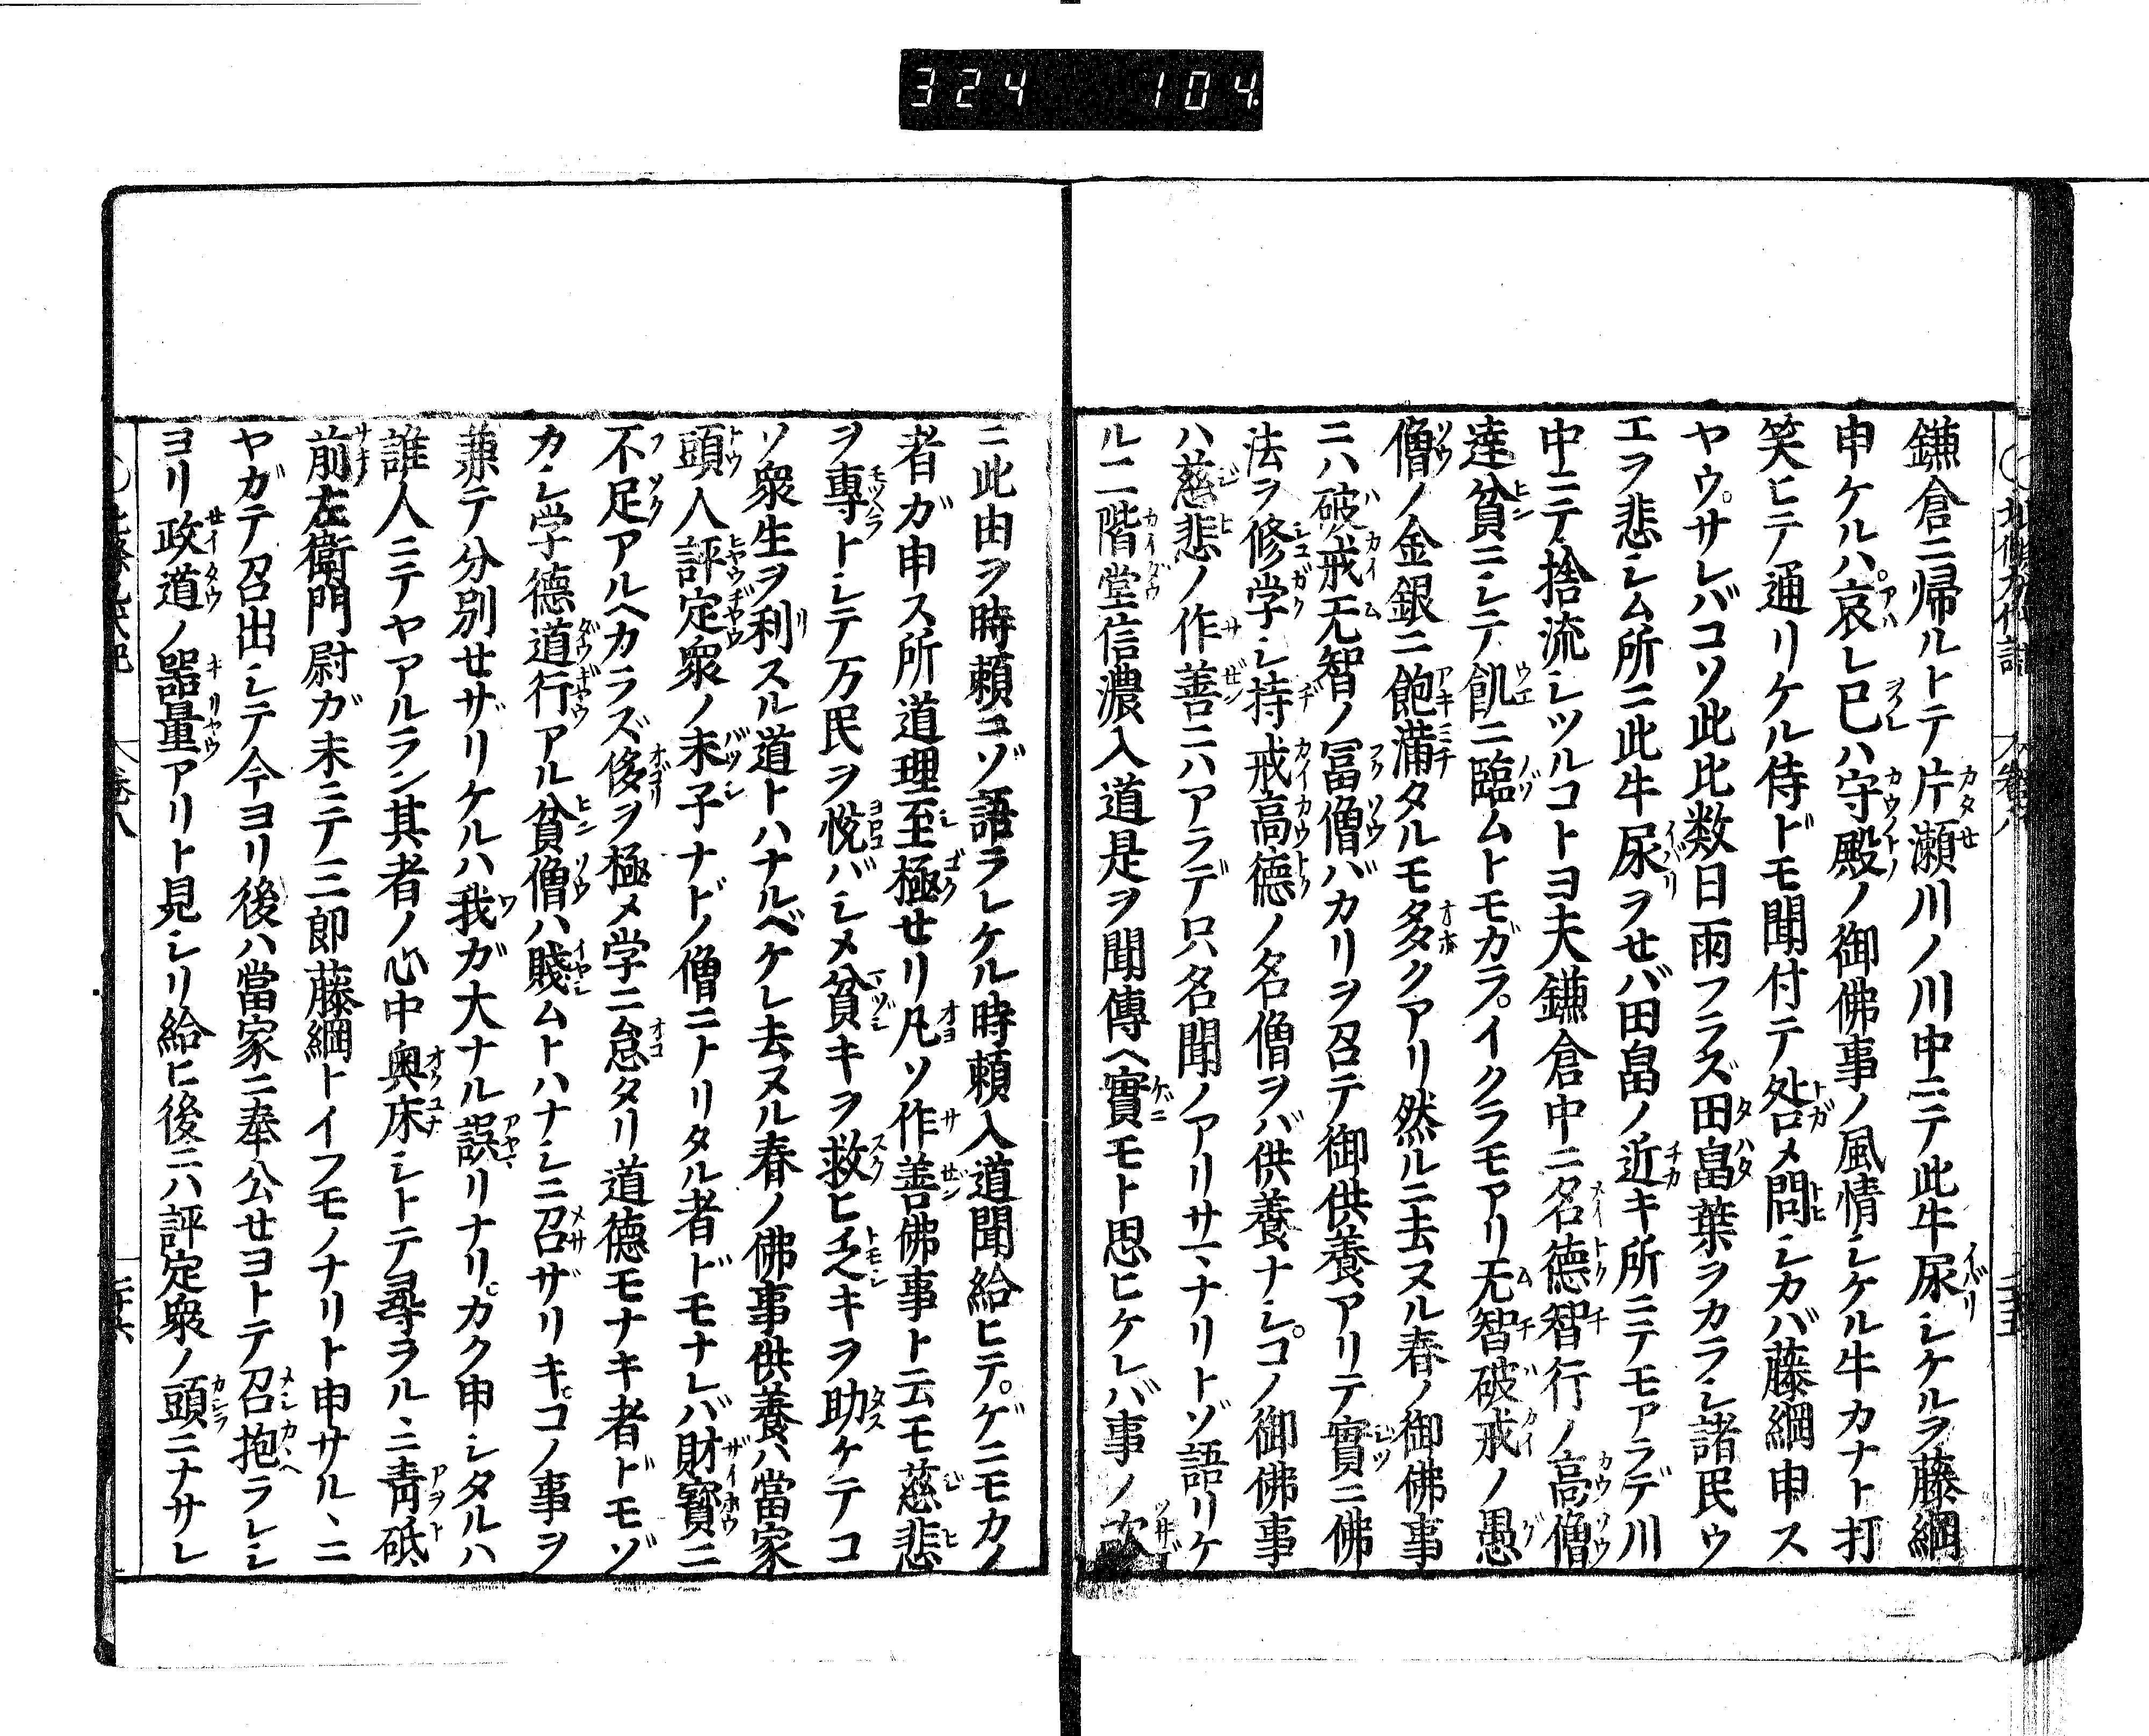 324 104
鎌倉ニ帰ルトテ片瀬川ノ川中ニテ此牛尿シケルヲ藤綱
申ケルハ哀レ巳ハ守殿ノ御佛事ノ風情シケル牛カナト打
笑ヒテ通リケル侍ドモ聞付テ咎メ問シカバ藤綱申ス
ヤウサレバコソ此比数日雨フラズ田畠葉ヲカラシ諸民ウ
エヲ悲シム所ニ此牛尿ヲせバ田畠ノ近キ所ニテモアラデ川
中ニテ捨流シツルコトヨ夫鎌倉中ニ名徳智行ノ高僧
達貧ニシテ飢ニ臨ムトモガライクラモアリ无智破戒ノ愚
僧ノ金銀ニ飽満タルモ多クアリ然ルニ去ヌル春ノ御佛事
ニハ破戒无智ノ冨僧バカリヲ召テ御供養アリテ實ニ佛
法ヲ修学シ持戒高徳ノ名僧ヲバ供養ナシコノ御佛事
ハ慈悲ノ作善ニハアラデ只名聞ノアリサマナリトゾ語リケ
ル二階堂信濃入道是ヲ聞傳ヘ實モト思ヒケレバ事ノ次
ニ此由ヲ時頼ニゾ語ラレケル時頼入道聞給ヒテゲニモカノ
者ガ申ス所道理至極せリ凡ソ作善佛事ト云モ慈悲
ヲ專トシテ万民ヲ悦バシメ貧キヲ救ヒ乏キヲ助ケテコ
ソ衆生ヲ利スル道トハナルベケレ去ヌル春ノ佛事供養ハ當家
頭人評定衆ノ末子ナドノ僧ニトリタル者ドモナレバ財寳ニ
不足アルヘカラズ侈ヲ極メ学ニ怠タリ道徳モナキ者ドモゾ
カシ学徳道行アル貧僧ハ賤ムトハナシニ召ザリキコノ事ヲ
兼テ分別せザリケルハ我ガ大ナル誤リナリカク申シタルハ
誰人ニテヤアルラン其者ノ心中奥床シトテ尋ラルヽニ青砥
前左衛門尉ガ末ニテ三郎藤綱トイフモノナリト申サルヽニ
ヤガテ召出シテ今ヨリ後ハ當家ニ奉公せヨトテ召抱ラレシ
ヨリ政道ノ器量アリト見シリ給ヒ後ニハ評定衆ノ頭ニナサレ